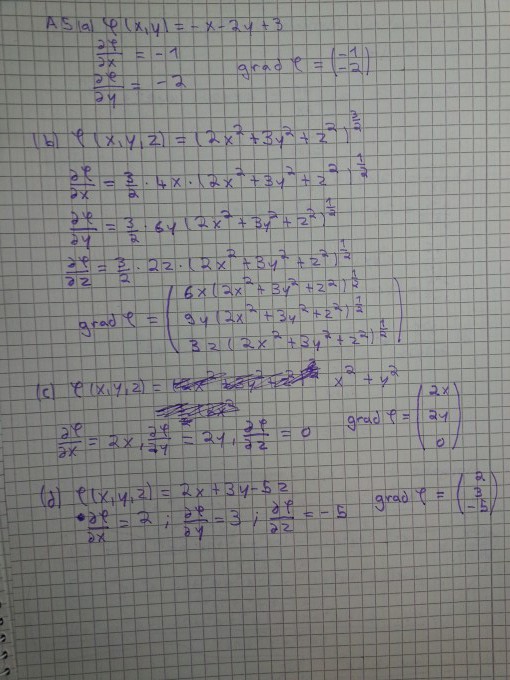 A5(a) φ(x,y) = -x-2y+3
∂φ/∂x = -1
∂φ/∂y = -2   grad φ = (-1 -2)
(b) φ(x,y,z) = (2x²+3y²+z²)^3/2
∂φ/∂x = 3/2 · 4x · (2x²+3y²+z²)^1/2
∂φ/∂y = 3/2 · 6y (2x²+3y²+z²)^1/2
∂φ/∂z = 3/2 · 2z · (2x²+3y²+z²)^1/2
grad φ = (6x(2x²+3y²+z²)^1/2
9y(2x²+3y²+z²)^1/2
3z(2x²+3y²+z²)^1/2)
(c) φ(x,y,z) = x² + y²
∂φ/∂x = 2x, ∂φ/∂y = 2y, ∂φ/∂z = 0   grad φ = (2x 2y 0)
(d) φ(x,y,z) = 2x+3y-5z
∂φ/∂x = 2 ; ∂φ/∂y = 3 ; ∂φ/∂z = -5   grad φ = (2 3 -5)